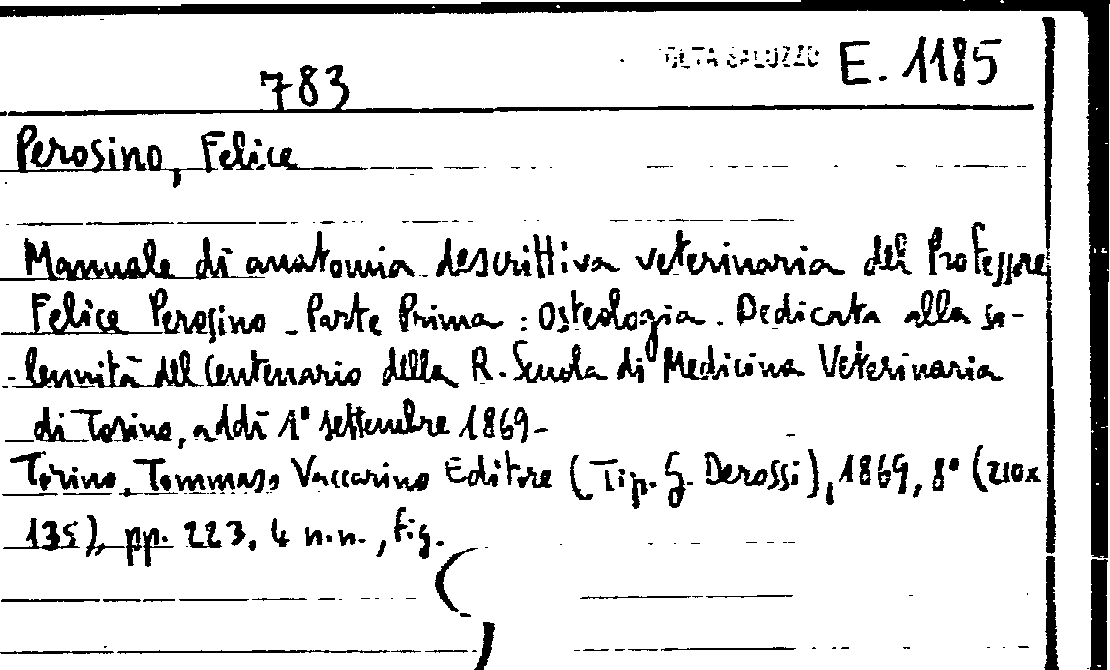 SALUZZO E. 1185
783
Perosino, Felice
Manuale di anatomia descrittiva veterinaria del Professore
Felice Perosino - Parte Prima : Osteologia. Dedicata alla so-
lennità del Centenario della R. Scuola di Medicina Veterinaria
di Torino, addì 1° settembre 1869-
Torino, Tommaso Vaccarino Editore (Tip. G. Derossi), 1869, 8° (210x
135), pp. 223, 4 n.n., fig.